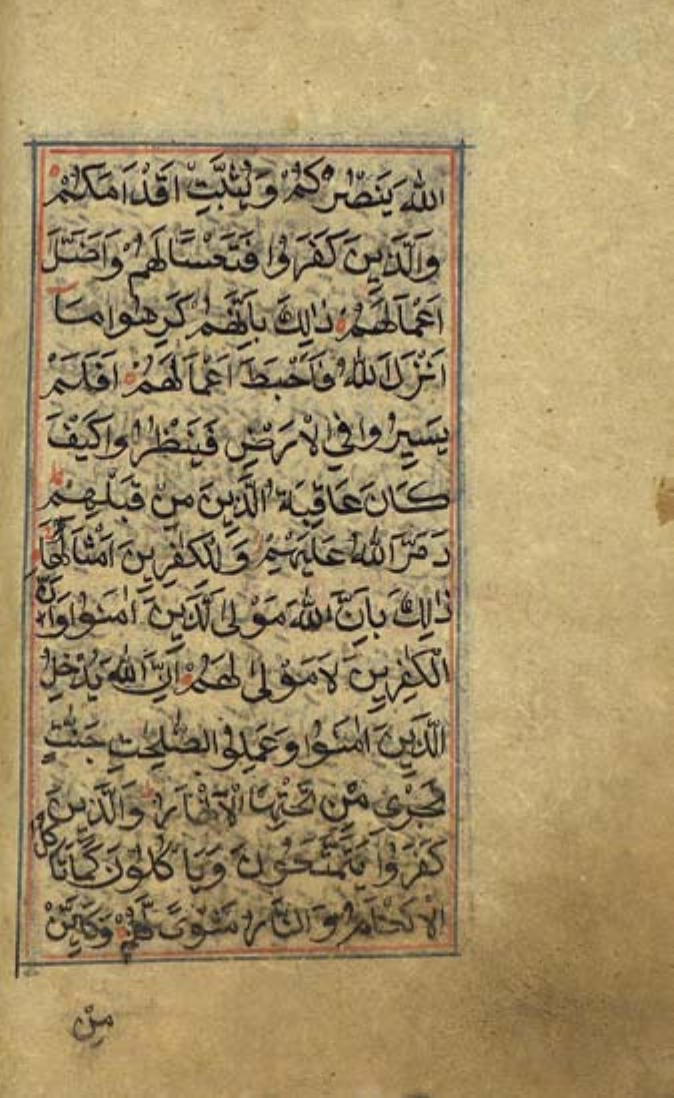 اللهَ يَنْصُرْكُمْ وَيُثَبِّتْ اَقْدَامَكُمْ
وَالَّذِينَ كَفَرُوا فَتَعْسًا لَهُمْ وَاَضَلَّ
اَعْمَالَهُمْ ذٰلِكَ بِاَنَّهُمْ كَرِهُوا مَآ
اَنْزَلَ اللهُ فَاَحْبَطَ اَعْمَالَهُمْ اَفَلَمْ
يَسِيرُوا فِي الْاَرْضِ فَيَنْظُرُوا كَيْفَ
كَانَ عَاقِبَةُ الَّذِينَ مِنْ قَبْلِهِمْ
دَمَّرَ اللهُ عَلَيْهِمْ وَلِلْكٰفِرِينَ اَمْثَالُهَا
ذٰلِكَ بِاَنَّ اللهَ مَوْلَى الَّذِينَ اٰمَنُوا وَاَنَّ
الْكٰفِرِينَ لَا مَوْلٰى لَهُمْ اِنَّ اللهَ يُدْخِلُ
الَّذِينَ اٰمَنُوا وَعَمِلُوا الصّٰلِحٰتِ جَنّٰتٍ
تَجْرِي مِنْ تَحْتِهَا الْاَنْهَارُ وَالَّذِينَ
كَفَرُوا يَتَمَتَّعُونَ وَيَاْكُلُونَ كَمَا تَاْكُلُ
الْاَنْعَامُ وَالنَّارُ مَثْوًى لَهُمْ وَكَاَيِّنْ
مِنْ